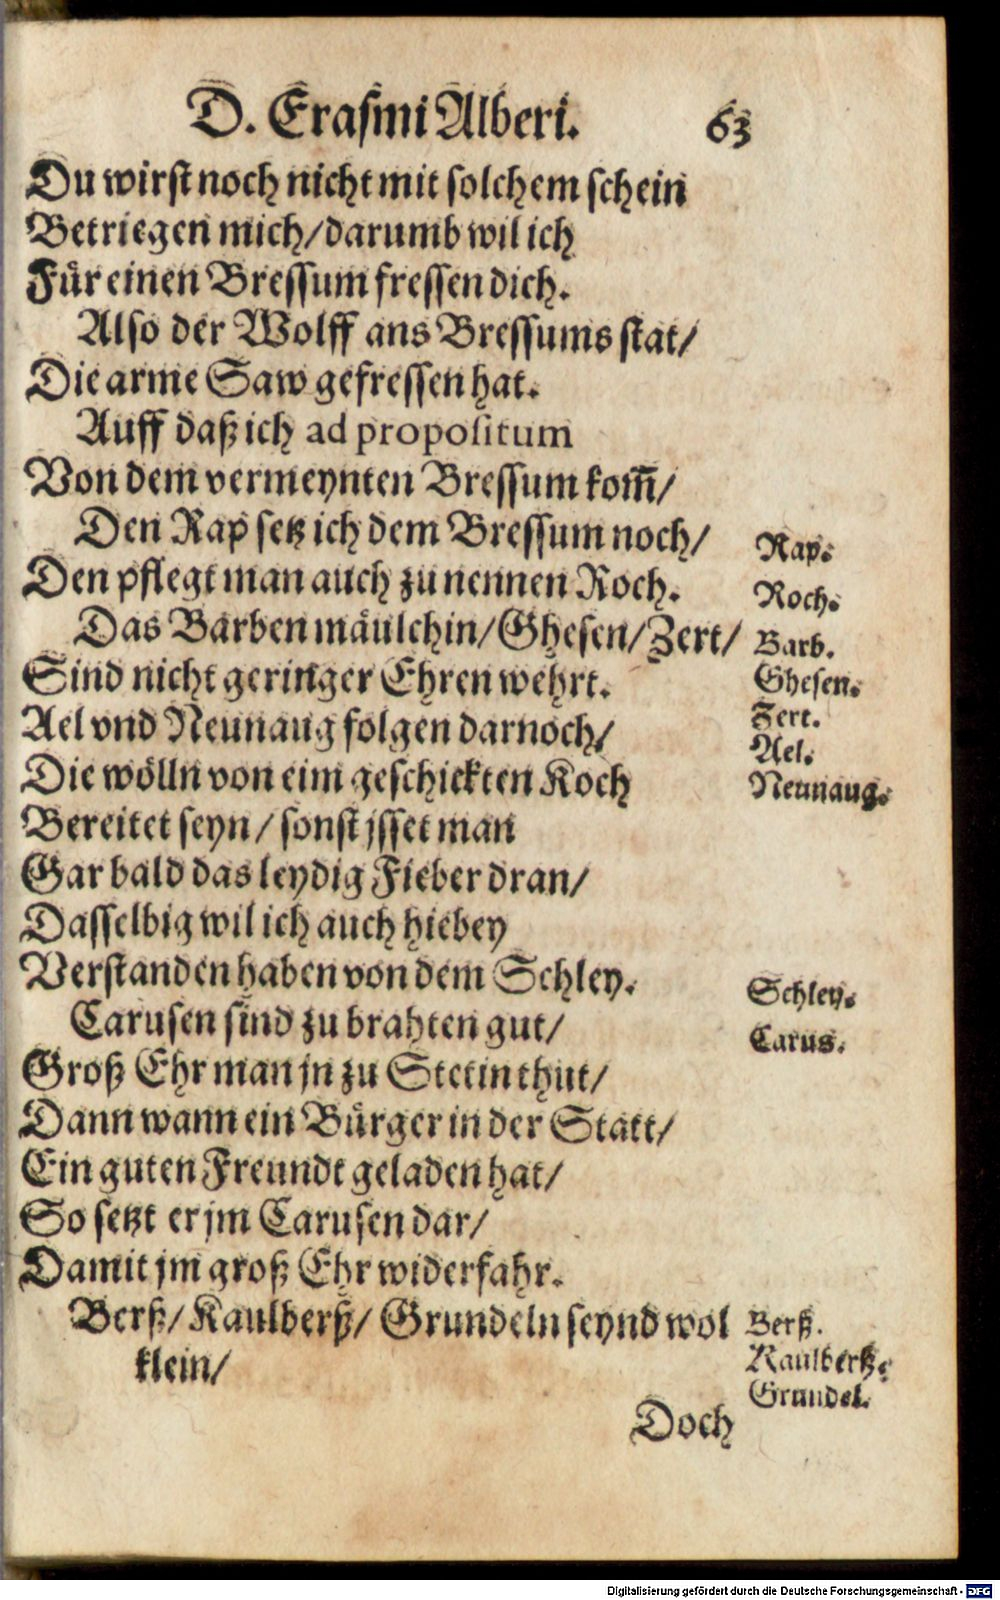 D. Erasmi Alberi. 63
Du wirst noch nicht mit solchem schein
Betriegen mich/darumb wil ich
Für einen Bressum fressen dich.
Also der Wolff ans Bressums stat/
Die arme Saw gefressen hat.
Auff daß ich ad propositum
Von dem vermeynten Bressum kom̃/
Den Rap setz ich dem Bressum noch/
Rap.
Den pflegt man auch zu nennen Roch.
Roch.
Das Barben mäulchin/Ghesen/Zert/
Barb.
Sind nicht geringer Ehren wehrt.
Ghesen.
Zert.
Ael vnd Neunaug folgen darnoch/
Ael.
Die wölln von eim geschickten Koch
Neunaug.
Bereitet seyn/ sonst jsset man
Gar bald das leydig Fieber dran/
Dasselbig wil ich auch hiebey
Verstanden haben von dem Schley.
Schley.
Carusen sind zu brahten gut/
Carus.
Groß Ehr man jn zu Stetin thut/
Dann wann ein Bürger in der Statt/
Ein guten Freundt geladen hat/
So setzt er jm Carusen dar/
Damit jm groß Ehr widerfahr.
Berß/ Kaulberß/ Grundeln seynd wol
klein/
Berß.
Kaulberß.
Grundel.
Doch
Digitalisierung gefördert durch die Deutsche Forschungsgemeinschaft - DFG